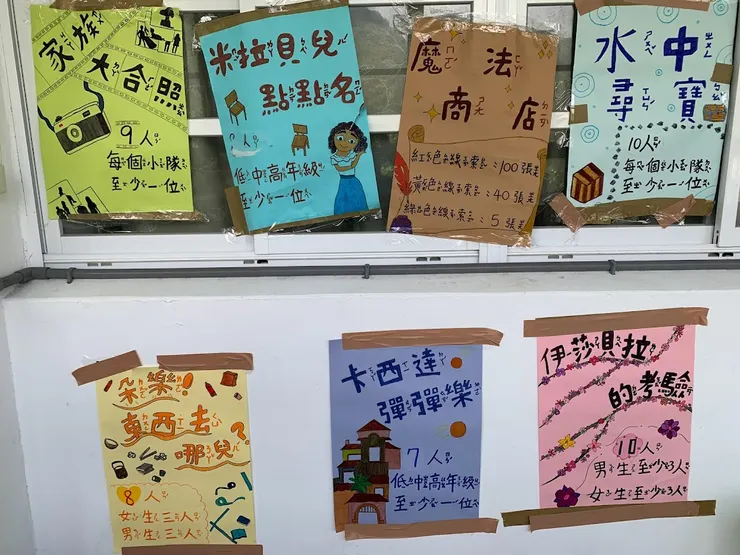 家族
大合照
9人
每個小隊
至少一位
米拉貝兒
點點名
人
低中高年級
至少一位
魔法
商店
紅色線索:100張
黃色線索:40張
綠色線索:5張
水中
尋寶
10人
每個小隊
至少一位
朵樂!
東西去
哪兒?
8人
女生三人
男生三人
卡西達
彈彈樂
7人
低中高年級
至少一位
伊莎貝拉
的考驗
10人
男生至少3人
女生至少3人